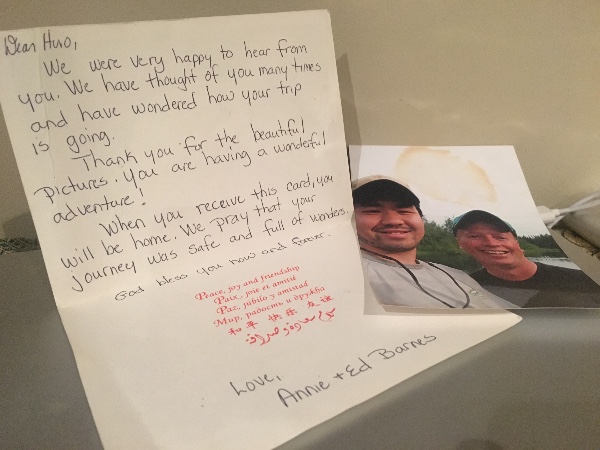 Dear Huo,
We were very happy to hear from
you. We have thought of you many times
and have wondered how your trip
is going.
Thank you for the beautiful
pictures. You are having a wonderful
adventure!
When you receive this card, you
will be home. We pray that your
journey was safe and full of wonders.
God bless you now and forever.
Peace, joy and friendship
Paix, joie et amitié
Paz, jubilo y amistad
Мир, радость и дружба
和平 快乐 友谊
Love,
Annie + Ed Barnes